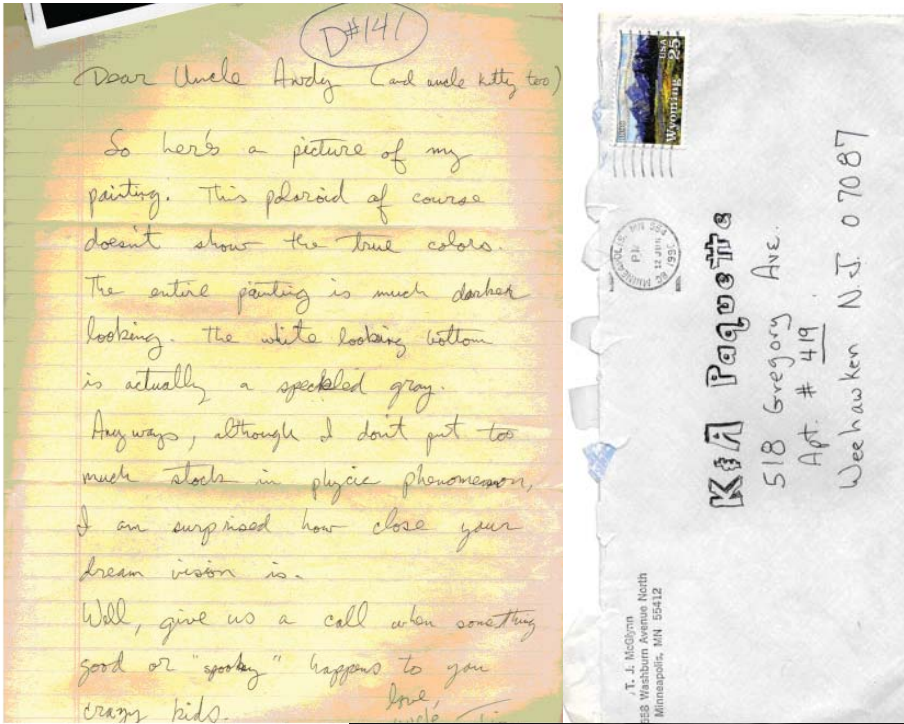 D#141
Dear Uncle Andy (and uncle kitty too)
So here's a picture of my
painting. This polaroid of course
doesn't show the true colors.
The entire painting is much darker
looking. The white looking bottom
is actually a speckled gray.
Any ways, although I don't put too
much stock in phycic phenomenon,
I am surprised how close your
dream vision is.
Well, give us a call when something
good or "spooky" happens to you
crazy kids.
love,
uncle
USA 25
Wyoming
1890
MINNEAPOLIS, MN 554
PM
12 JUN
1990
K&A Paquette
518 Gregory Ave.
Apt. # 419
Weehawken N.J. 07087
T. J. McGlynn
Washburn Avenue North
Minneapolis, MN 55412